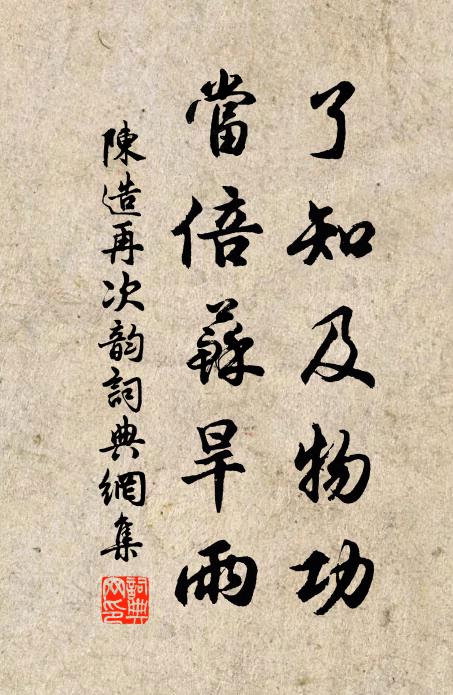 了知及物功
當倍蘇旱雨
陳造再次韵詞典網集
詞典網印